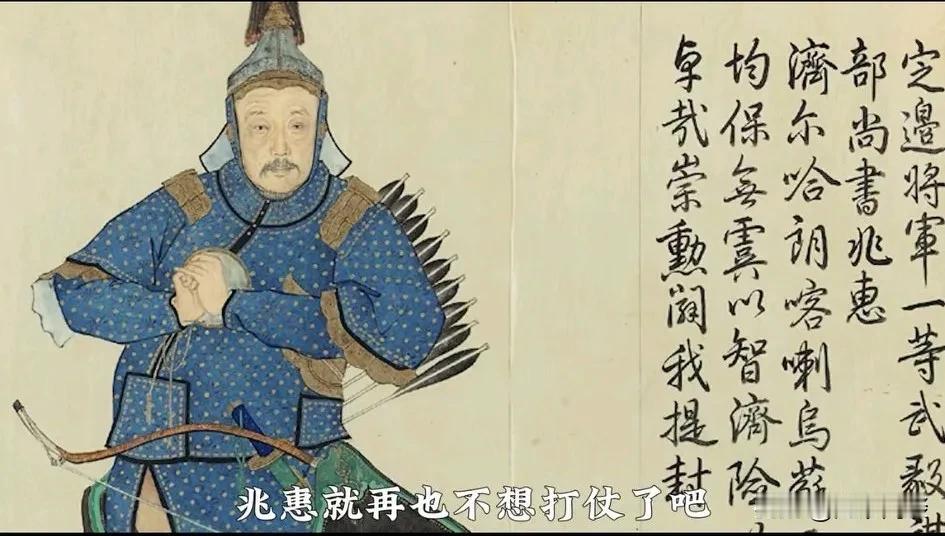 定邊將軍一等武毅
部尚書兆惠
濟尔哈朗喀喇烏蘇
均保無虞以智濟險
卓哉崇勳闢我提封
兆惠就再也不想打仗了吧